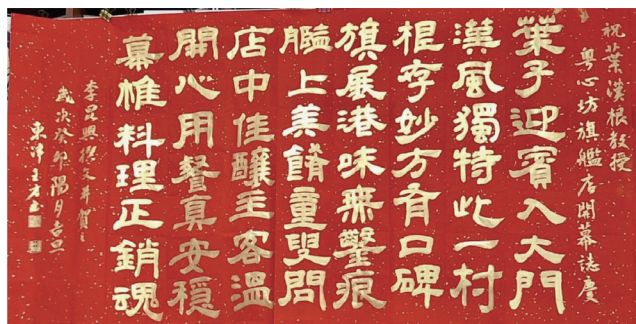 祝葉漢根教授
粵心坊旗艦店開幕誌慶
葉子迎賓入大門
漢風獨特此一村
根存妙方有口碑
旗展港味無鑿痕
艦上美餚童叟問
店中佳釀主客溫
開心用餐真安穩
幕帷料理正銷魂
李昆興撰文并賀之
歲次癸卯陽月吉旦
東津王方